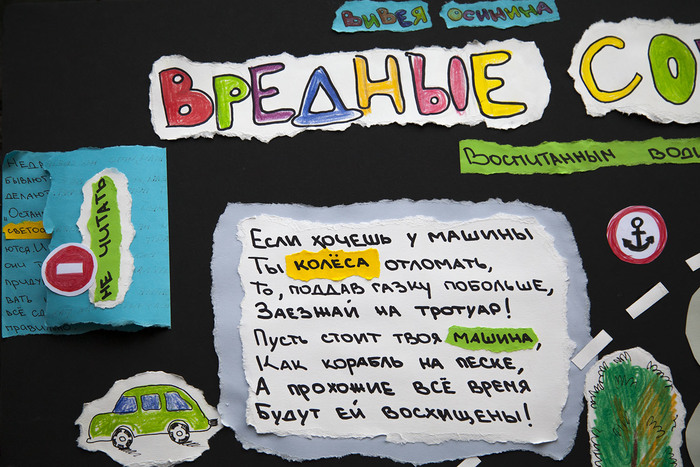 ВИВЕЯ ОСИНИНА
ВРЕДНЫЕ СО
ВОСПИТАННЫМ ВОДИ
НЕДР
БЫВАЮТ
ДЕЛАЮТ
„ОСТАН
СВЕТОФ
ЮТСЯ. И
ОНИ Т
ПРИДУ
ВАТЬ
ВСЁ СД
ПРАВИЛ
НЕ ЧИТАТЬ
ЕСЛИ ХОЧЕШЬ У МАШИНЫ
ТЫ КОЛЁСА ОТЛОМАТЬ,
ТО, ПОДДАВ ГАЗКУ ПОБОЛЬШЕ,
ЗАЕЗЖАЙ НА ТРОТУАР!
ПУСТЬ СТОИТ ТВОЯ МАШИНА,
КАК КОРАБЛЬ НА ПЕСКЕ,
А ПРОХОЖИЕ ВСЁ ВРЕМЯ
БУДУТ ЕЙ ВОСХИЩЕНЫ!